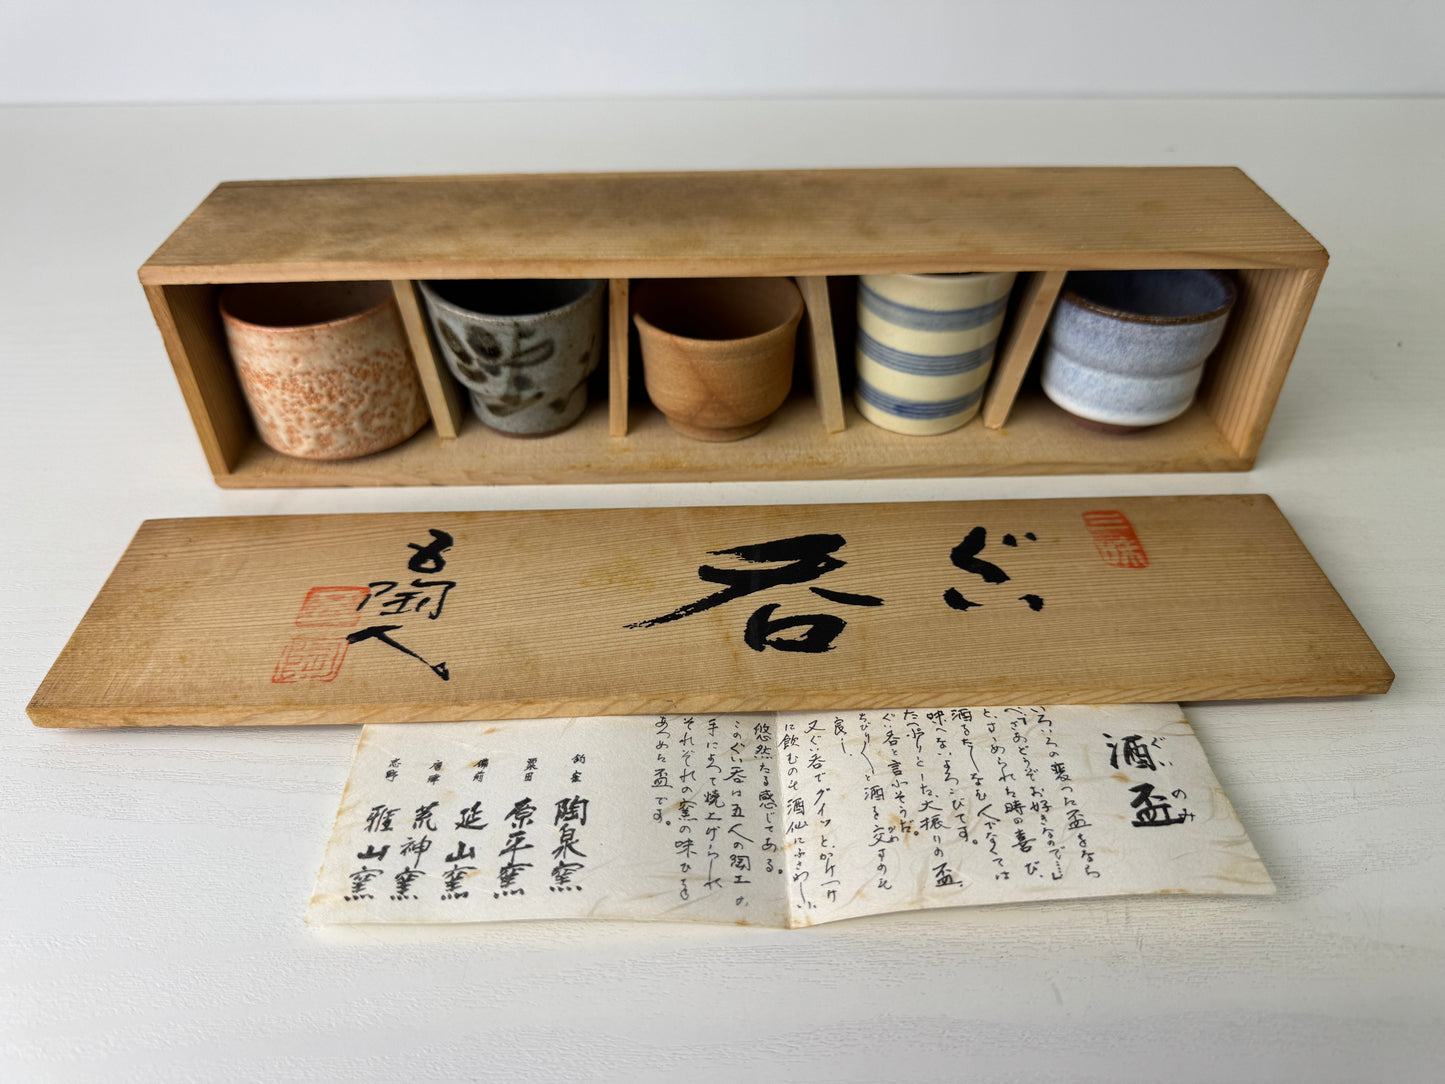 三味
ぐい
呑
五陶人
五陶
酒盃
ぐい
のみ
いろいろの変った盃をなら
べ、さあどうぞお好きなので…
と、すゝめられた時の喜び、
酒をたしなむ人でなくては
味へないよろこびです。
たっぷりとした大振りの盃、
ぐい呑と言ふそうだ。
ちびり〱と酒を交すのも
良し、
又ぐい呑でグイッとかたつけ
に飲むのも酒仙にふさわしい
悠然たる感じである。
このぐい呑は五人の陶工の
手によって焼上げられ
それぞれの窯の味ひを
あつめた盃です。
釣窯 陶泉窯
粟田 原平窯
備前 延山窯
唐津 荒神窯
志野 雅山窯